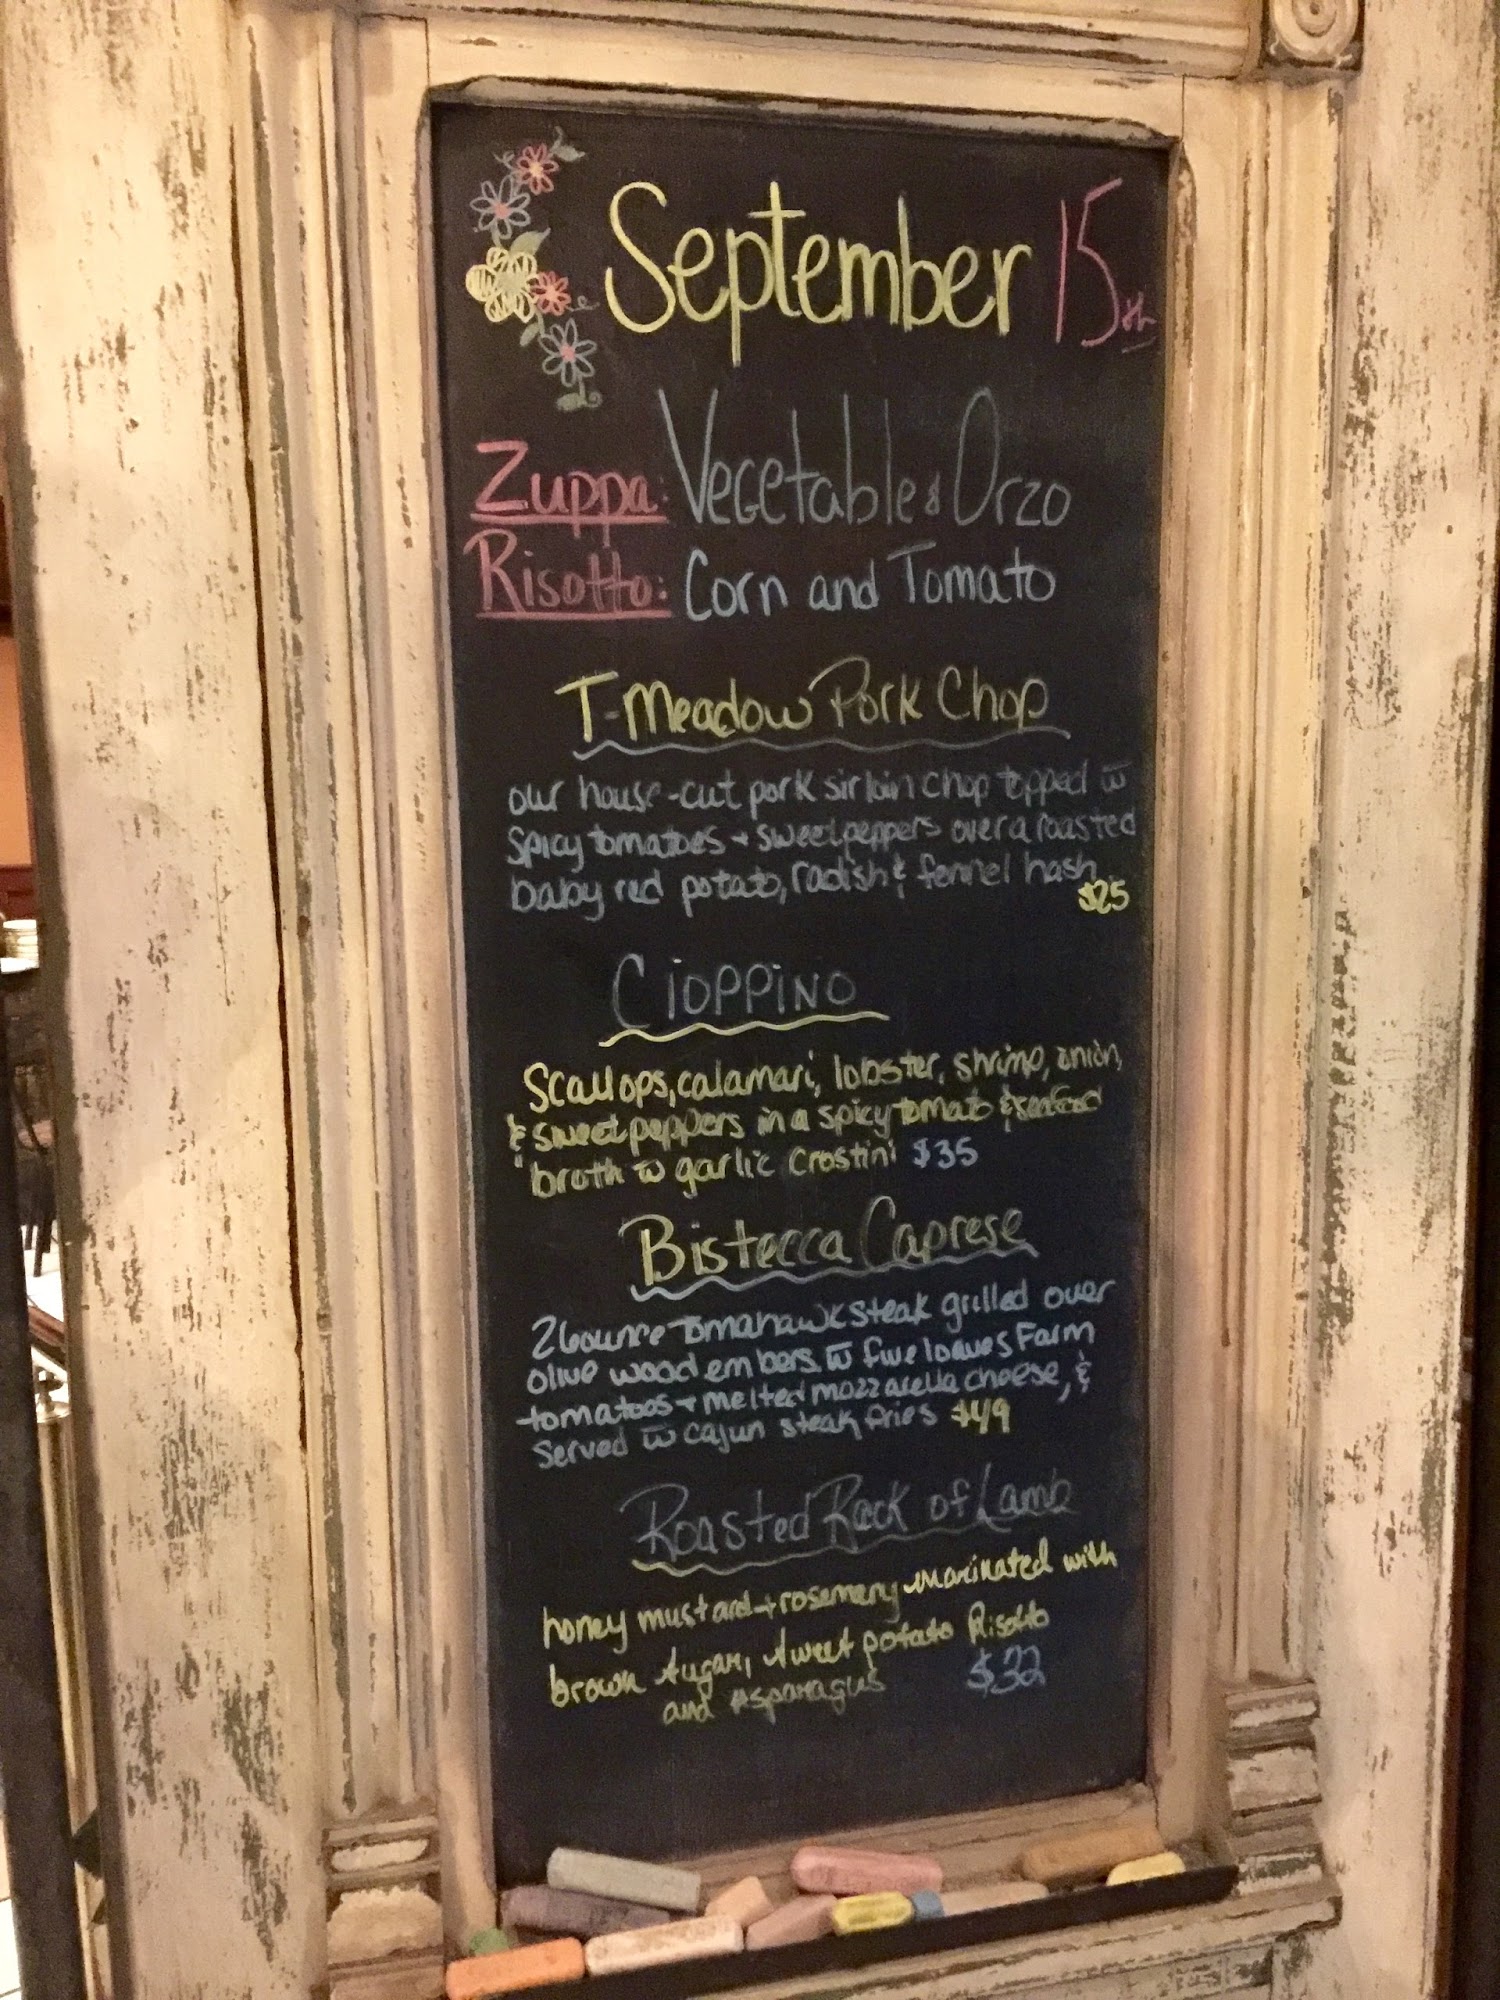 September 15th
Zuppa: Vegetable & Orzo
Risotto: Corn and Tomato
T-Meadow Pork Chop
our house-cut pork sirloin chop topped w
spicy tomatoes + sweet peppers over a roasted
baby red potato, radish & fennel hash
$25
Cioppino
Scallops, calamari, lobster, shrimp, onion,
& sweet peppers in a spicy tomato & seafood
broth w garlic crostini $35
Bistecca Caprese
26ounce tomahawk steak grilled over
olive wood embers w five loaves Farm
tomatoes + melted mozzarella cheese, &
served w cajun steak fries $49
Roasted Rack of Lamb
honey mustard + rosemary marinated with
brown sugar, sweet potato Risotto
and asparagus $32